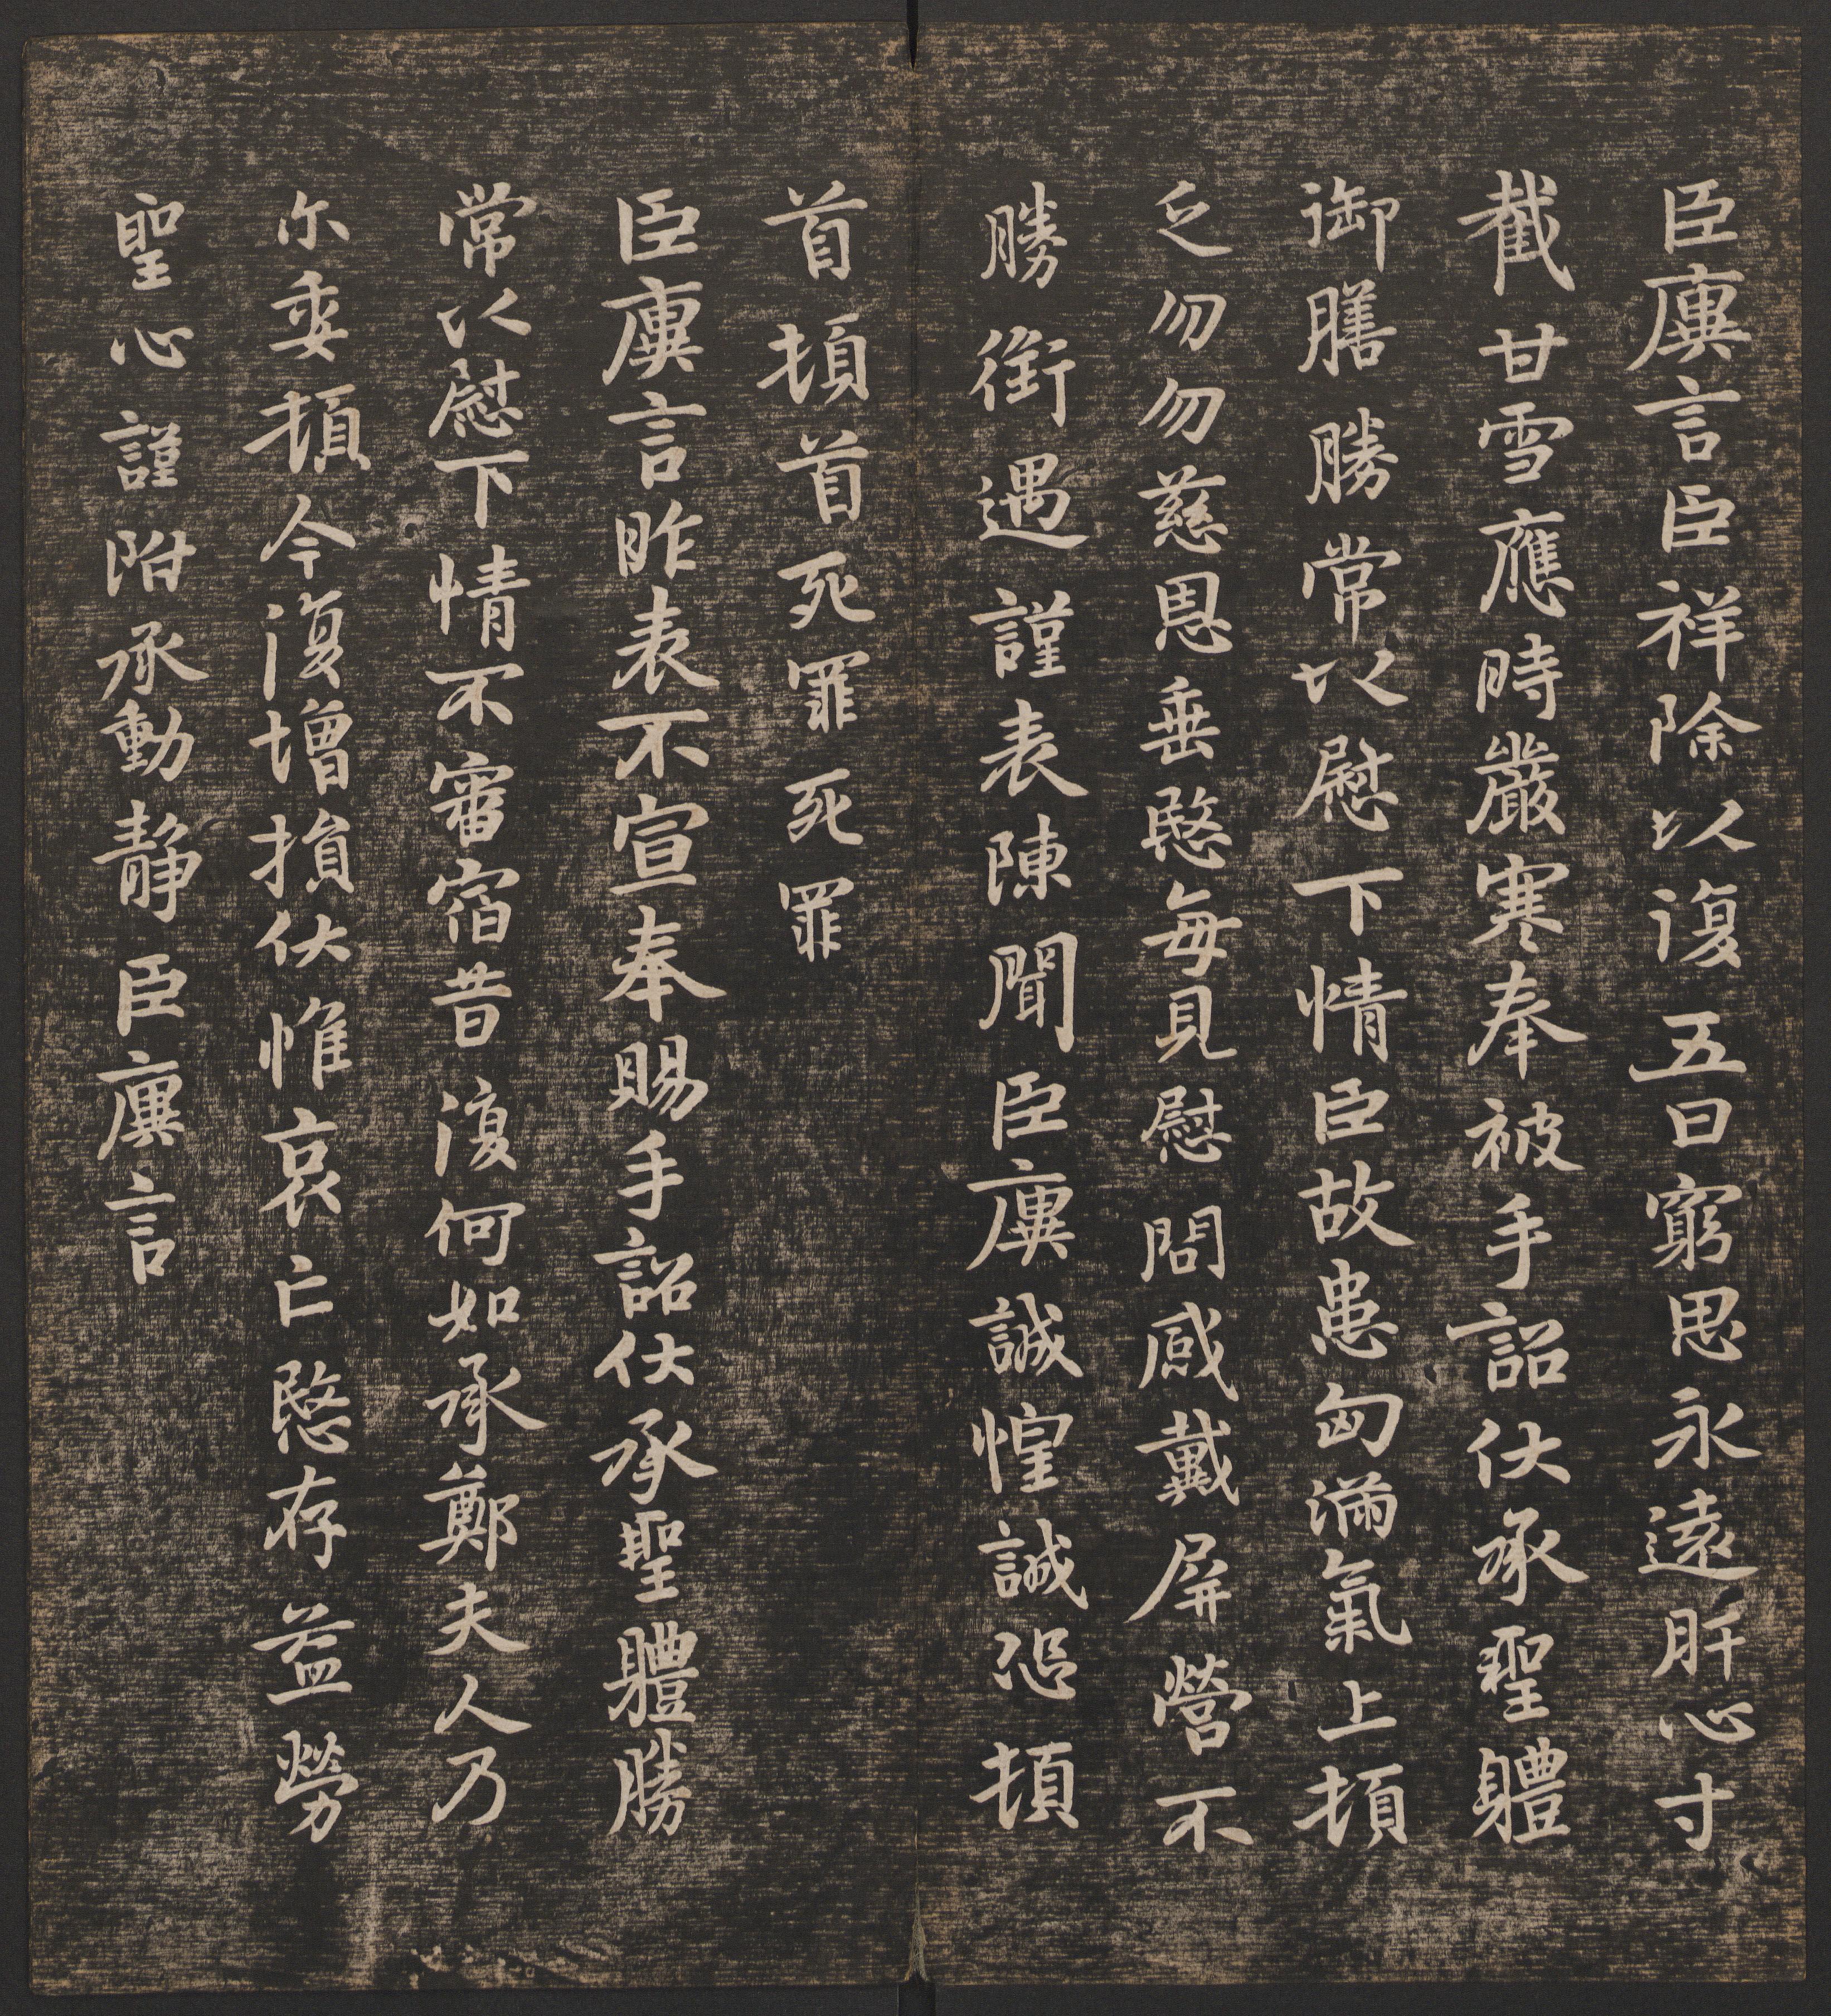 臣廙言臣祥除以復五日窮思永遠肝心寸
截甘雪應時嚴寒奉被手詔伏承聖體
御膳勝常以慰下情臣故患匈滿氣上頓
乏勿勿慈恩垂愍每見慰問感戴屏營不
勝銜遇謹表陳聞臣廙誠惶誠恐頓
首頓首死罪死罪
臣廙言昨表不宣奉賜手詔伏承聖體勝
常以慰下情不審宿昔復何如承鄭夫人乃
尒委頓今復增損伏惟哀亡愍存益勞
聖心謹附承動静臣廙言